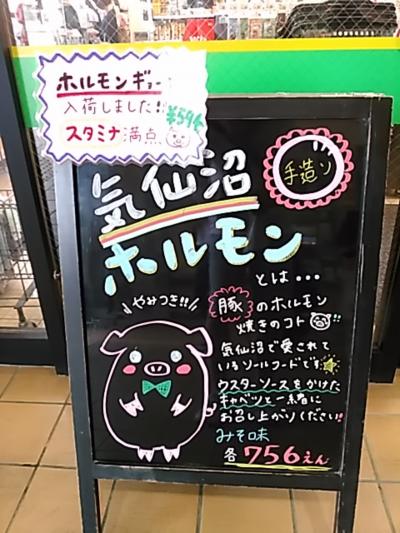 ホルモンギョー
入荷しました!!
¥594
スタミナ満点
手造り
気仙沼
ホルモン
とは...
やみつき!!
豚のホルモン
焼きのコト!!
気仙沼で愛されて
いるソールフードです
ウスターソースをかけた
キャベツと一緒に
お召し上がりください!!
みそ味
各756えん